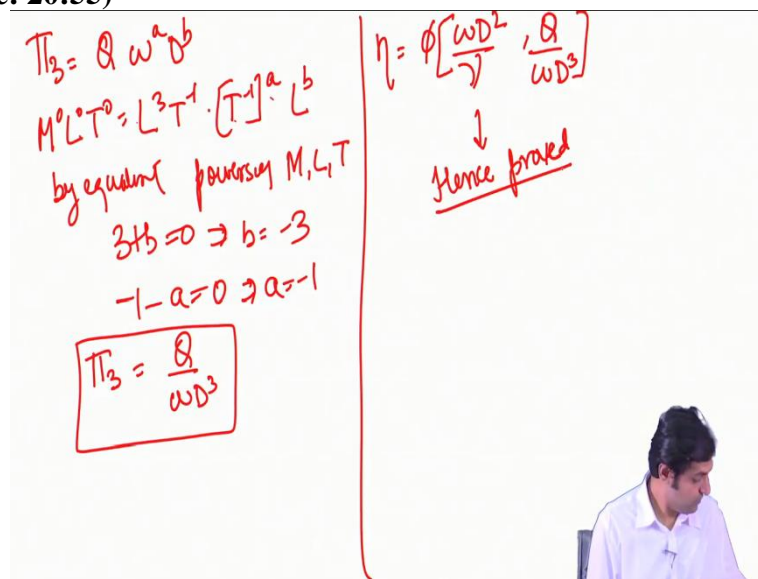 Π₃ = Q ω^a D^b
M⁰L⁰T⁰ = L³T⁻¹ · [T⁻¹]^a · L^b
by equating powers of M, L, T
3+b=0 ⇒ b= -3
-1-a=0 ⇒ a=-1
Π₃ = Q/ωD³
η = φ[ωD²/ν , Q/ωD³]
↓
Hence proved